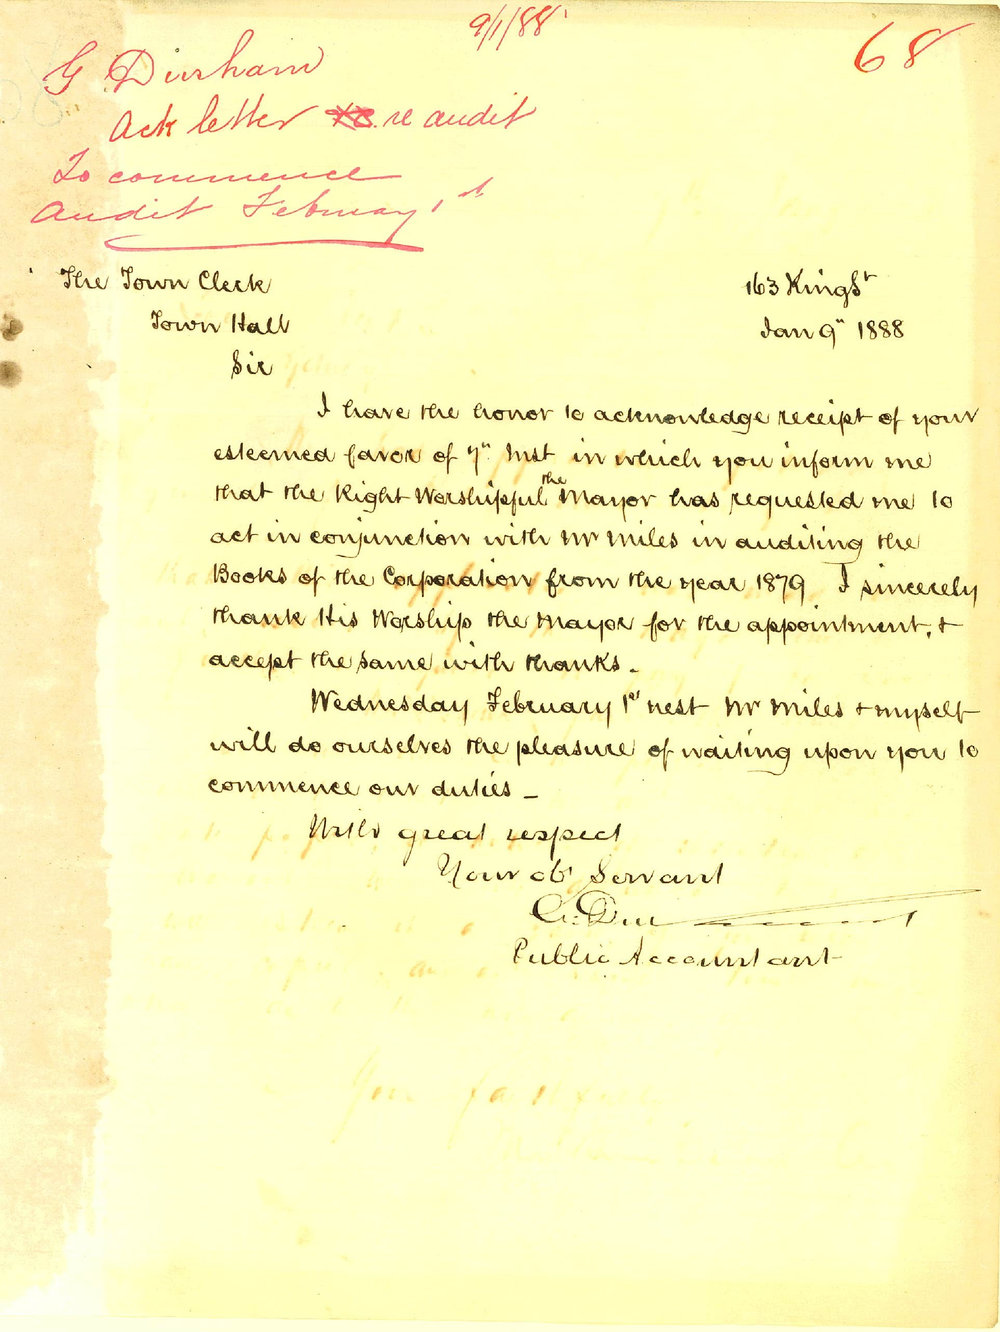 9/1/88
68
G Durham
Ack letter re audit
To commence
Audit February 1st
The Town Clerk
163 King St
Town Hall
Jan 9" 1888
Sir
I have the honor to acknowledge receipt of your
esteemed favor of 7" Inst in which you inform me
that the Right Worshipful the Mayor has requested me to
act in conjunction with Mr Miles in auditing the
Books of the Corporation from the year 1879 I sincerely
thank His Worship the Mayor for the appointment, &
accept the same with thanks.
Wednesday February 1st next Mr Miles & myself
will do ourselves the pleasure of waiting upon you to
commence our duties -
With great respect
Your obt Servant
G. Dur
Public Accountant